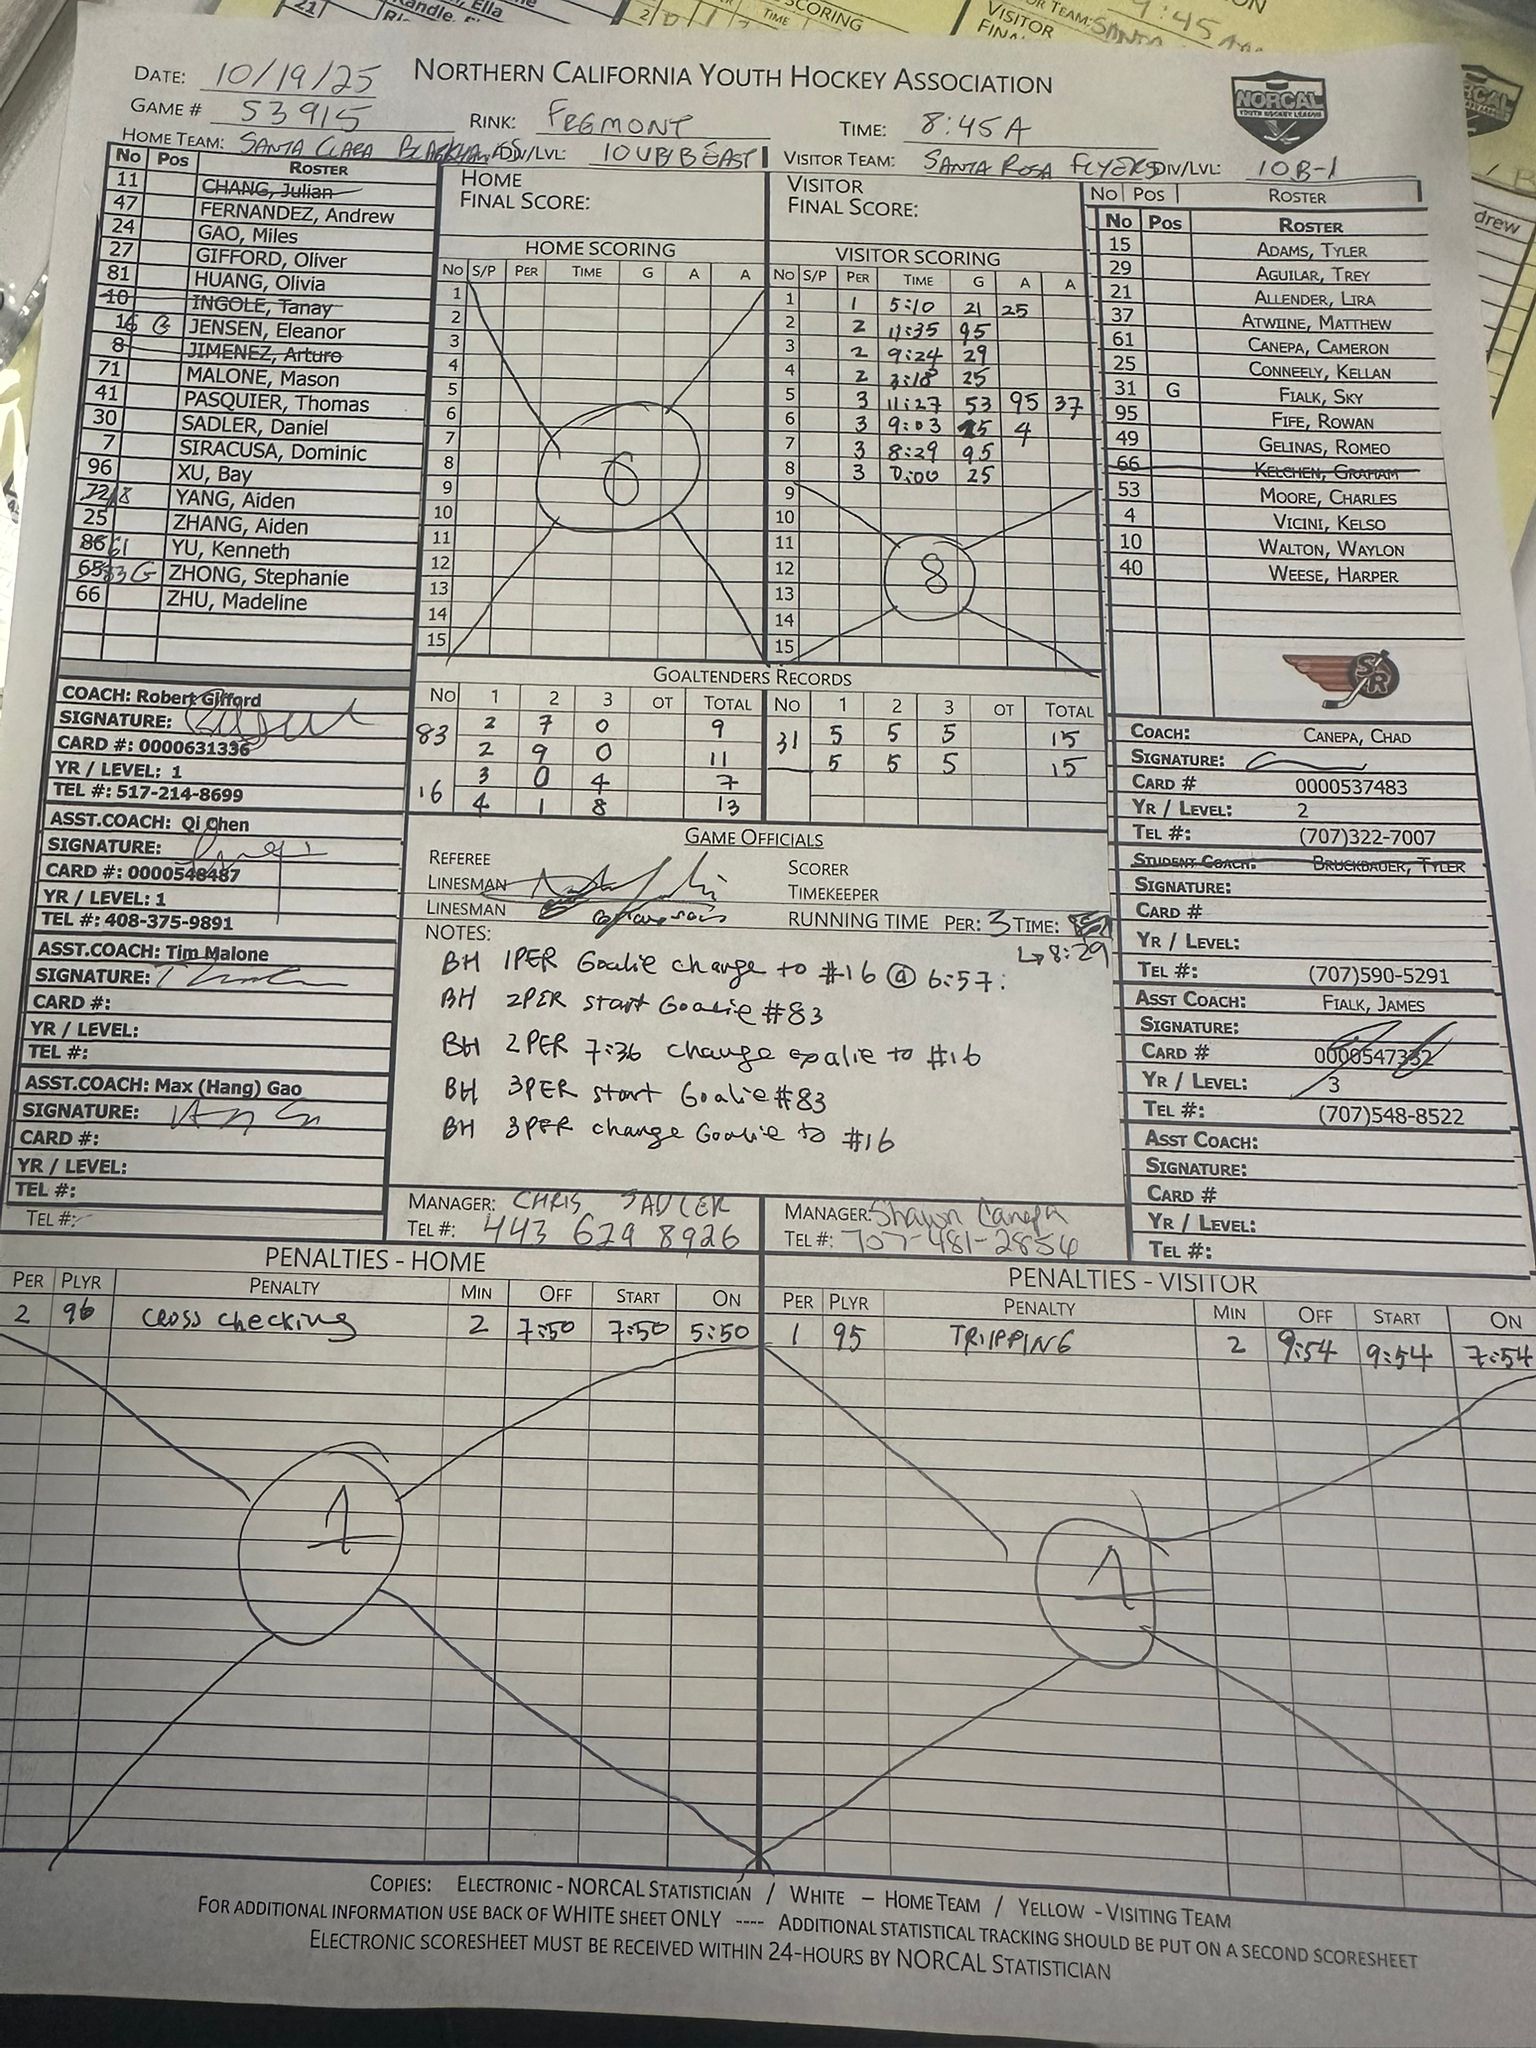 DATE: 10/19/25 NORTHERN CALIFORNIA YOUTH HOCKEY ASSOCIATION
GAME # 53915 RINK: FREMONT TIME: 8:45A
NORCAL
YOUTH HOCKEY LEAGUE
HOME TEAM: SANTA CLARA BLACKHAWKS DIV/LVL: 10UB/B EAST VISITOR TEAM: SANTA ROSA FLYERS DIV/LVL: 10B-1
No Pos ROSTER
11 CHANG, Julian
47 FERNANDEZ, Andrew
24 GAO, Miles
27 GIFFORD, Oliver
81 HUANG, Olivia
10 INGOLE, Tanay
16 G JENSEN, Eleanor
8 JIMENEZ, Arturo
71 MALONE, Mason
41 PASQUIER, Thomas
30 SADLER, Daniel
7 SIRACUSA, Dominic
96 XU, Bay
72 18 YANG, Aiden
25 ZHANG, Aiden
86 61 YU, Kenneth
65 83 G ZHONG, Stephanie
66 ZHU, Madeline
HOME
FINAL SCORE:
HOME SCORING
No S/P PER TIME G A A
1
2
3
4
5
6
7
8
9
10
11
12
13
14
15
0
VISITOR
FINAL SCORE:
VISITOR SCORING
No S/P PER TIME G A A
1 1 5:10 21 25
2 2 11:35 95
3 2 9:24 29
4 2 3:18 25
5 3 11:27 53 95 37
6 3 9:03 15 4
7 3 8:29 95
8 3 0:00 25
9
10
11
12
13
14
15
8
No Pos ROSTER
No Pos ROSTER
15 ADAMS, TYLER
29 AGUILAR, TREY
21 ALLENDER, LIRA
37 ATWIINE, MATTHEW
61 CANEPA, CAMERON
25 CONNEELY, KELLAN
31 G FIALK, SKY
95 FIFE, ROWAN
49 GELINAS, ROMEO
66 KELCHEN, GRAHAM
53 MOORE, CHARLES
4 VICINI, KELSO
10 WALTON, WAYLON
40 WEESE, HARPER
SR
GOALTENDERS RECORDS
NO 1 2 3 OT TOTAL NO 1 2 3 OT TOTAL
83 2 7 0 9 31 5 5 5 15
2 9 0 11 5 5 5 15
16 3 0 4 7
4 1 8 13
GAME OFFICIALS
REFEREE SCORER
LINESMAN TIMEKEEPER
LINESMAN RUNNING TIME PER: 3 TIME:
8:29
NOTES:
BH 1PER Goalie change to #16 @ 6:57.
BH 2PER start Goalie #83
BH 2PER 7:36 change goalie to #16
BH 3PER start Goalie #83
BH 3PER change Goalie to #16
COACH: Robert Gifford
SIGNATURE:
CARD #: 0000631336
YR / LEVEL: 1
TEL #: 517-214-8699
ASST.COACH: Qi Chen
SIGNATURE:
CARD #: 0000548487
YR / LEVEL: 1
TEL #: 408-375-9891
ASST.COACH: Tim Malone
SIGNATURE:
CARD #:
YR / LEVEL:
TEL #:
ASST.COACH: Max (Hang) Gao
SIGNATURE:
CARD #:
YR / LEVEL:
TEL #:
TEL #:
COACH: CANEPA, CHAD
SIGNATURE:
CARD # 0000537483
YR / LEVEL: 2
TEL #: (707)322-7007
STUDENT COACH: BRUCKBAUER, TYLER
SIGNATURE:
CARD #
YR / LEVEL:
TEL #: (707)590-5291
ASST COACH: FIALK, JAMES
SIGNATURE:
CARD # 0000547332
YR / LEVEL: 3
TEL #: (707)548-8522
ASST COACH:
SIGNATURE:
CARD #
YR / LEVEL:
TEL #:
MANAGER: CHRIS SADLER MANAGER: Shawn Canepa
TEL #: 443 629 8926 TEL #: 707-481-2856
PENALTIES - HOME PENALTIES - VISITOR
PER PLYR PENALTY MIN OFF START ON PER PLYR PENALTY MIN OFF START ON
2 96 cross checking 2 7:50 7:50 5:50 1 95 TRIPPING 2 9:54 9:54 7:54
1 1
COPIES: ELECTRONIC - NORCAL STATISTICIAN / WHITE – HOME TEAM / YELLOW - VISITING TEAM
FOR ADDITIONAL INFORMATION USE BACK OF WHITE SHEET ONLY ---- ADDITIONAL STATISTICAL TRACKING SHOULD BE PUT ON A SECOND SCORESHEET
ELECTRONIC SCORESHEET MUST BE RECEIVED WITHIN 24-HOURS BY NORCAL STATISTICIAN